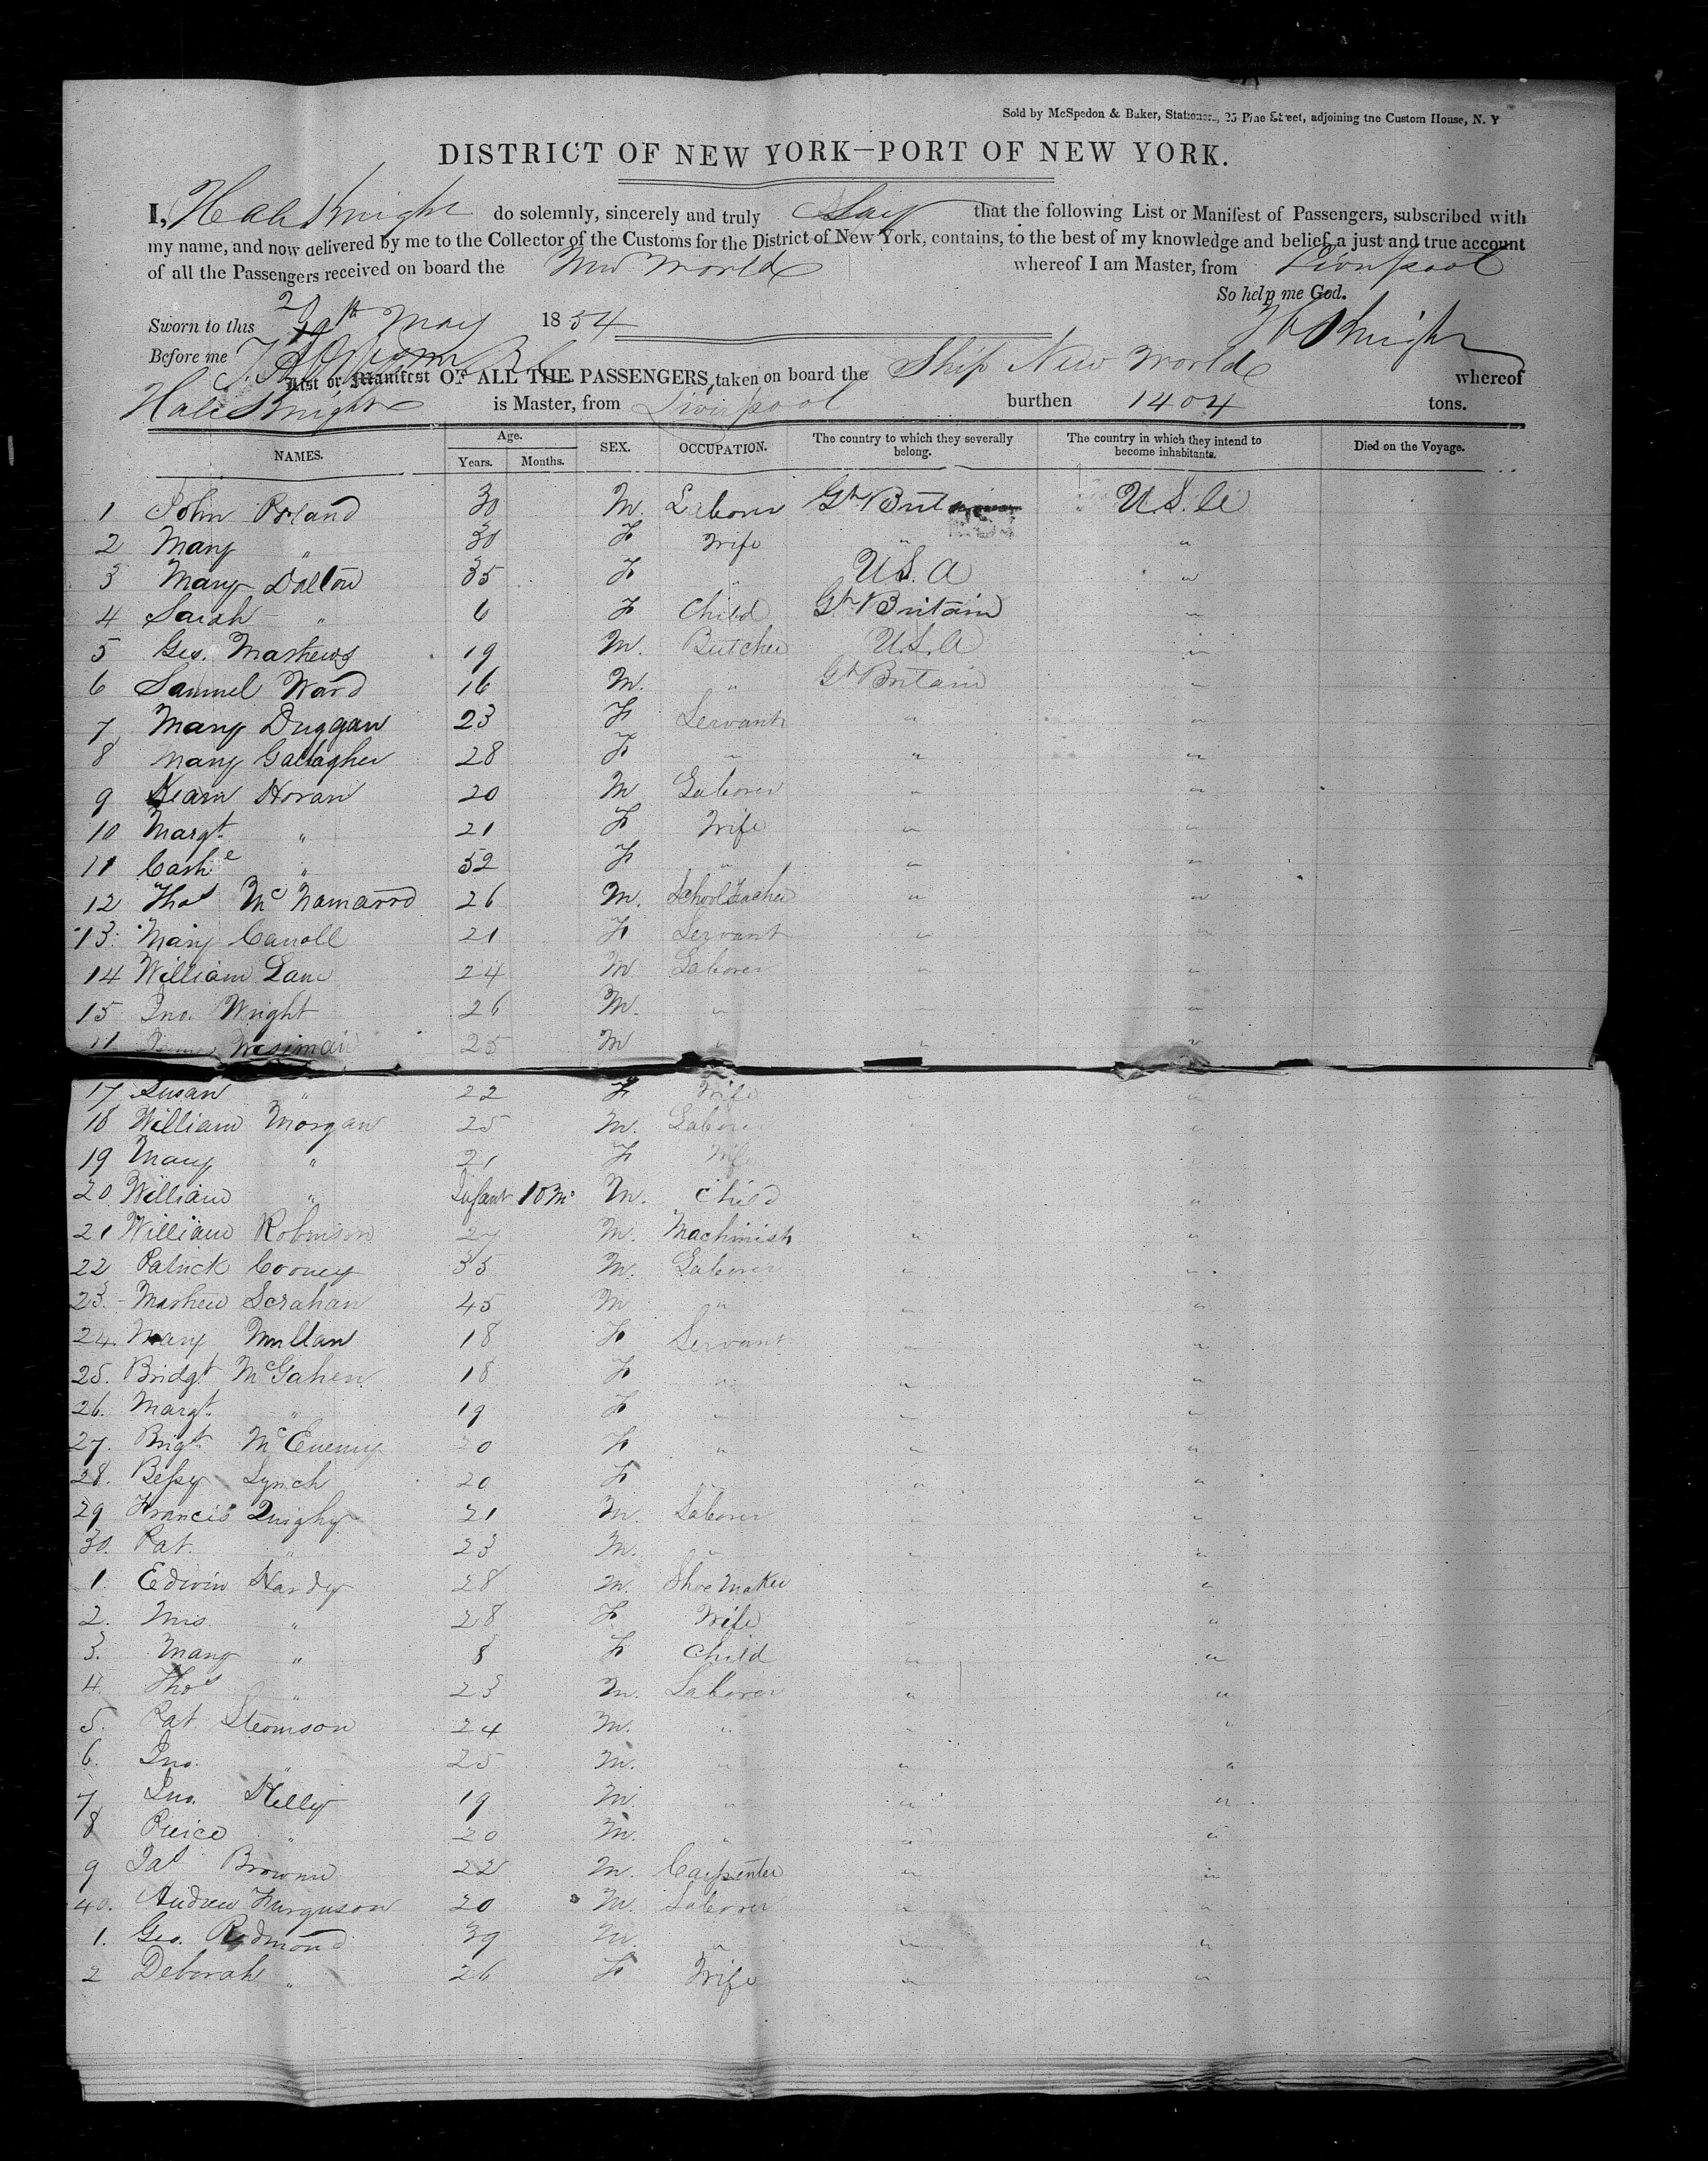 Sold by McSpedon & Baker, Stationers, 25 Pine Street, adjoining the Custom House, N. Y
DISTRICT OF NEW YORK—PORT OF NEW YORK.
I, Hale Knight do solemnly, sincerely and truly Say that the following List or Manifest of Passengers, subscribed with
my name, and now delivered by me to the Collector of the Customs for the District of New York, contains, to the best of my knowledge and belief, a just and true account
of all the Passengers received on board the New World whereof I am Master, from Liverpool
So help me God.
Sworn to this 20th May 1854 H Knight
Before me
List or Manifest OF ALL THE PASSENGERS taken on board the Ship New World whereof
Hale Knight is Master, from Liverpool burthen 1404 tons.
NAMES. Age. Years. Months. SEX. OCCUPATION. The country to which they severally belong. The country in which they intend to become inhabitants. Died on the Voyage.
1 John 30 M. Laborer Gt Britain U.S.A
2 Mary " 30 F Wife " "
3 Mary Dalton 35 F " U.S.A "
4 Sarah " 6 F Child Gt Britain "
5 Geo. Mathews 19 M. Butcher U.S.A "
6 Samuel Ward 16 M. " Gt Britain "
7 Mary Duggan 23 F Servant " "
8 Mary Gallagher 28 F " " "
9 Horan 20 M Laborer " "
10 Margt. " 21 F Wife " "
11 Cathe " 52 F " " "
12 Thos McNamarra 26 M. School Teacher " "
13. Mary Carroll 21 F Servant " "
14 William Lane 24 M Laborer " "
15 Jno. Wright 26 M. " " "
25 M " " "
17 Susan " 22 F Wife " "
18 William Morgan 25 M. Laborer " "
19 Mary " 21 F Wife "
20 William " Infant 10 Ms M. Child "
21 William Robinson 27 M. Machinist " "
22 Patrick Cooney 35 M. Laborer " "
23. Mathew Scrahan 45 M " " "
24. Mary Mullan 18 F Servant " "
25. Bridgt McGahen 18 F " " "
26. Margt. " 19 F " " "
27. Brigt. McEnemy 20 F " " "
28. Bessy Lynch 20 F " " "
29 Francis Quighy 21 M. Laborer " "
30. Pat " 23 M. " " "
1. Edwin Hardy 28 M. Shoe Maker "
2. Mrs " 28 F. Wife " "
3. Mary " 8 F Child " "
4. Thos " 23 M. Laborer " "
5. Pat Stemson 24 M. " " "
6. Jno. " 25 M. " " "
7 Jno. Kelly 19 M. " " "
8 Peirce " 20 M. " " "
9 Jas Browne 22 M. Carpenter " "
40. Andrew Furguson 20 M. Laborer " "
1. Geo. Redmond 39 M. " " "
2 Deborah " 26 F Wife " "